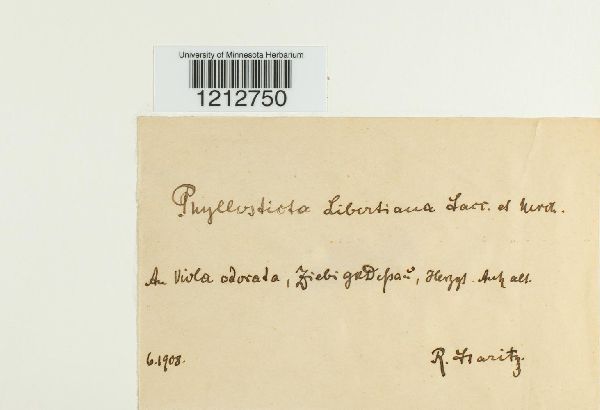 University of Minnesota Herbarium
1212750
Phyllosticta Libertiana Sacc. et March.
An Viola odorata, Ziebigk Dessau, Herzgt. Anhalt.
6.1908. R. Staritz.